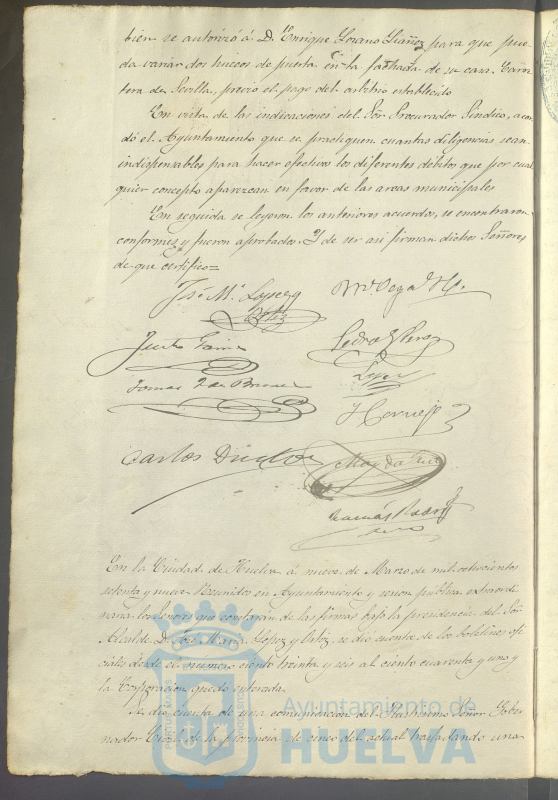 bien se autorizó á D. Enrique Lozano Yáñez para que pue-
da variar dos huecos de puerta en la fachada de su casa Carre-
tera de Sevilla, previo el pago del arbitrio establecido
En vista de las indicaciones del Sor. Procurador Síndico, acor-
dó el Ayuntamiento que se practiquen cuantas diligencias sean
indispensables para hacer efectivos los diferentes débitos que por cual
quier concepto aparezcan en favor de las arcas municipales
En seguida se leyeron los anteriores acuerdos, se encontraron
conformes y fueron aprobados. Y de ser asi firman dichos Señores
de que certifico=
José Mª Lopez y
Ortiz
Justo Garcia
Tomas
Carlos
En la Ciudad de Huelva á nueve de Marzo de mil ochocientos
setenta y nueve Reunidos en Ayuntamiento y sesion pública extraordi
naria los Señores que constaran de las firmas bajo la presidencia del Señ
Alcalde D. José Maria López y Ortiz, se dió cuenta de los boletines ofi
ciales desde el número ciento treinta y seis al ciento cuarenta y uno y
la Corporacion quedó enterada.
Se dió cuenta de una comunicacion del Ilustrisimo Señor Gober
nador Civil de la provincia de cinco del actual trasladando una
Ayuntamiento de
HUELVA